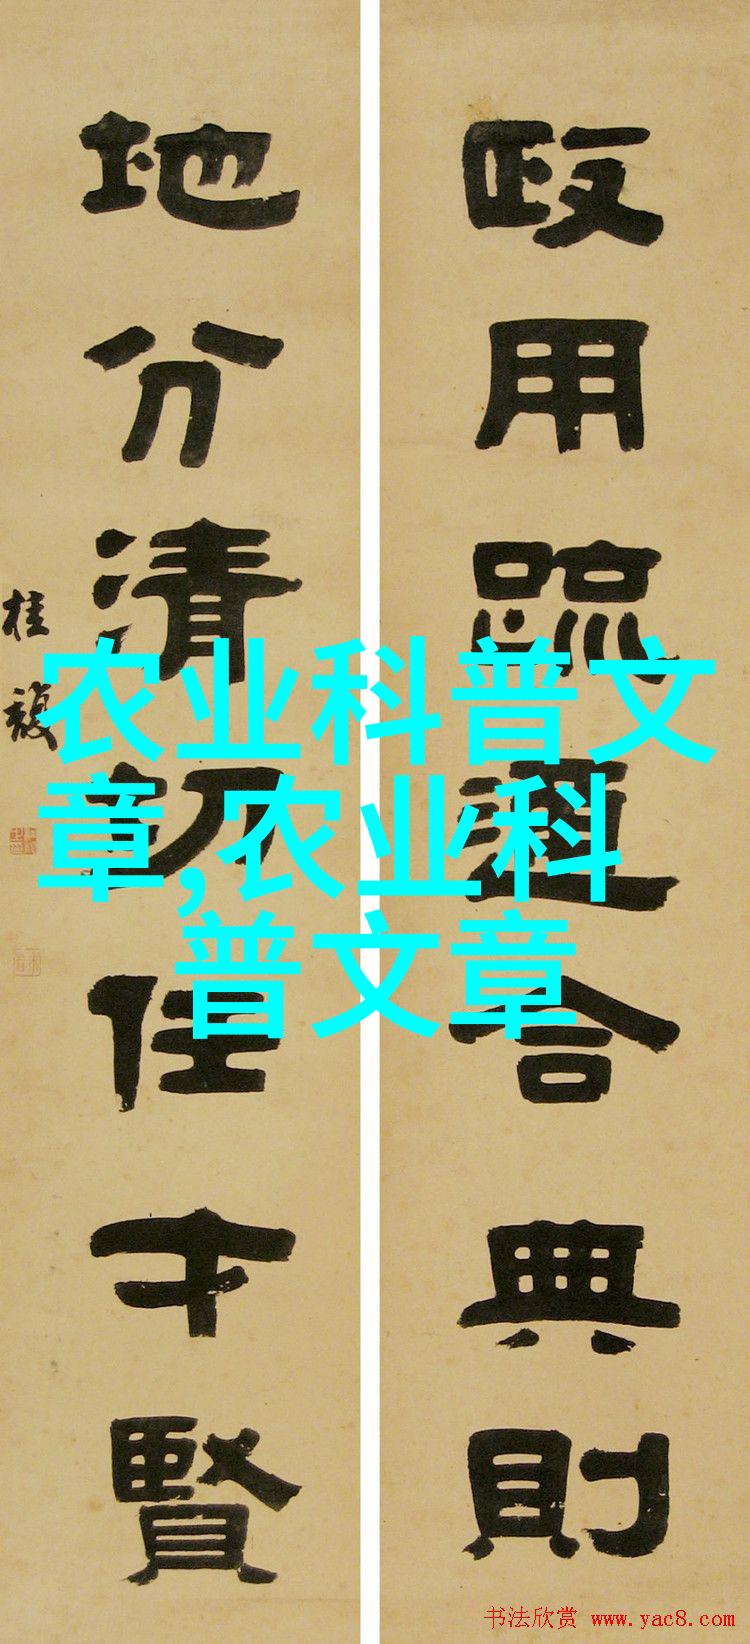 政用疏通合典則
地分清切任才賢
桂馥
农业科普文
章,农业科
普文章
书法欣赏 www.yac8.com